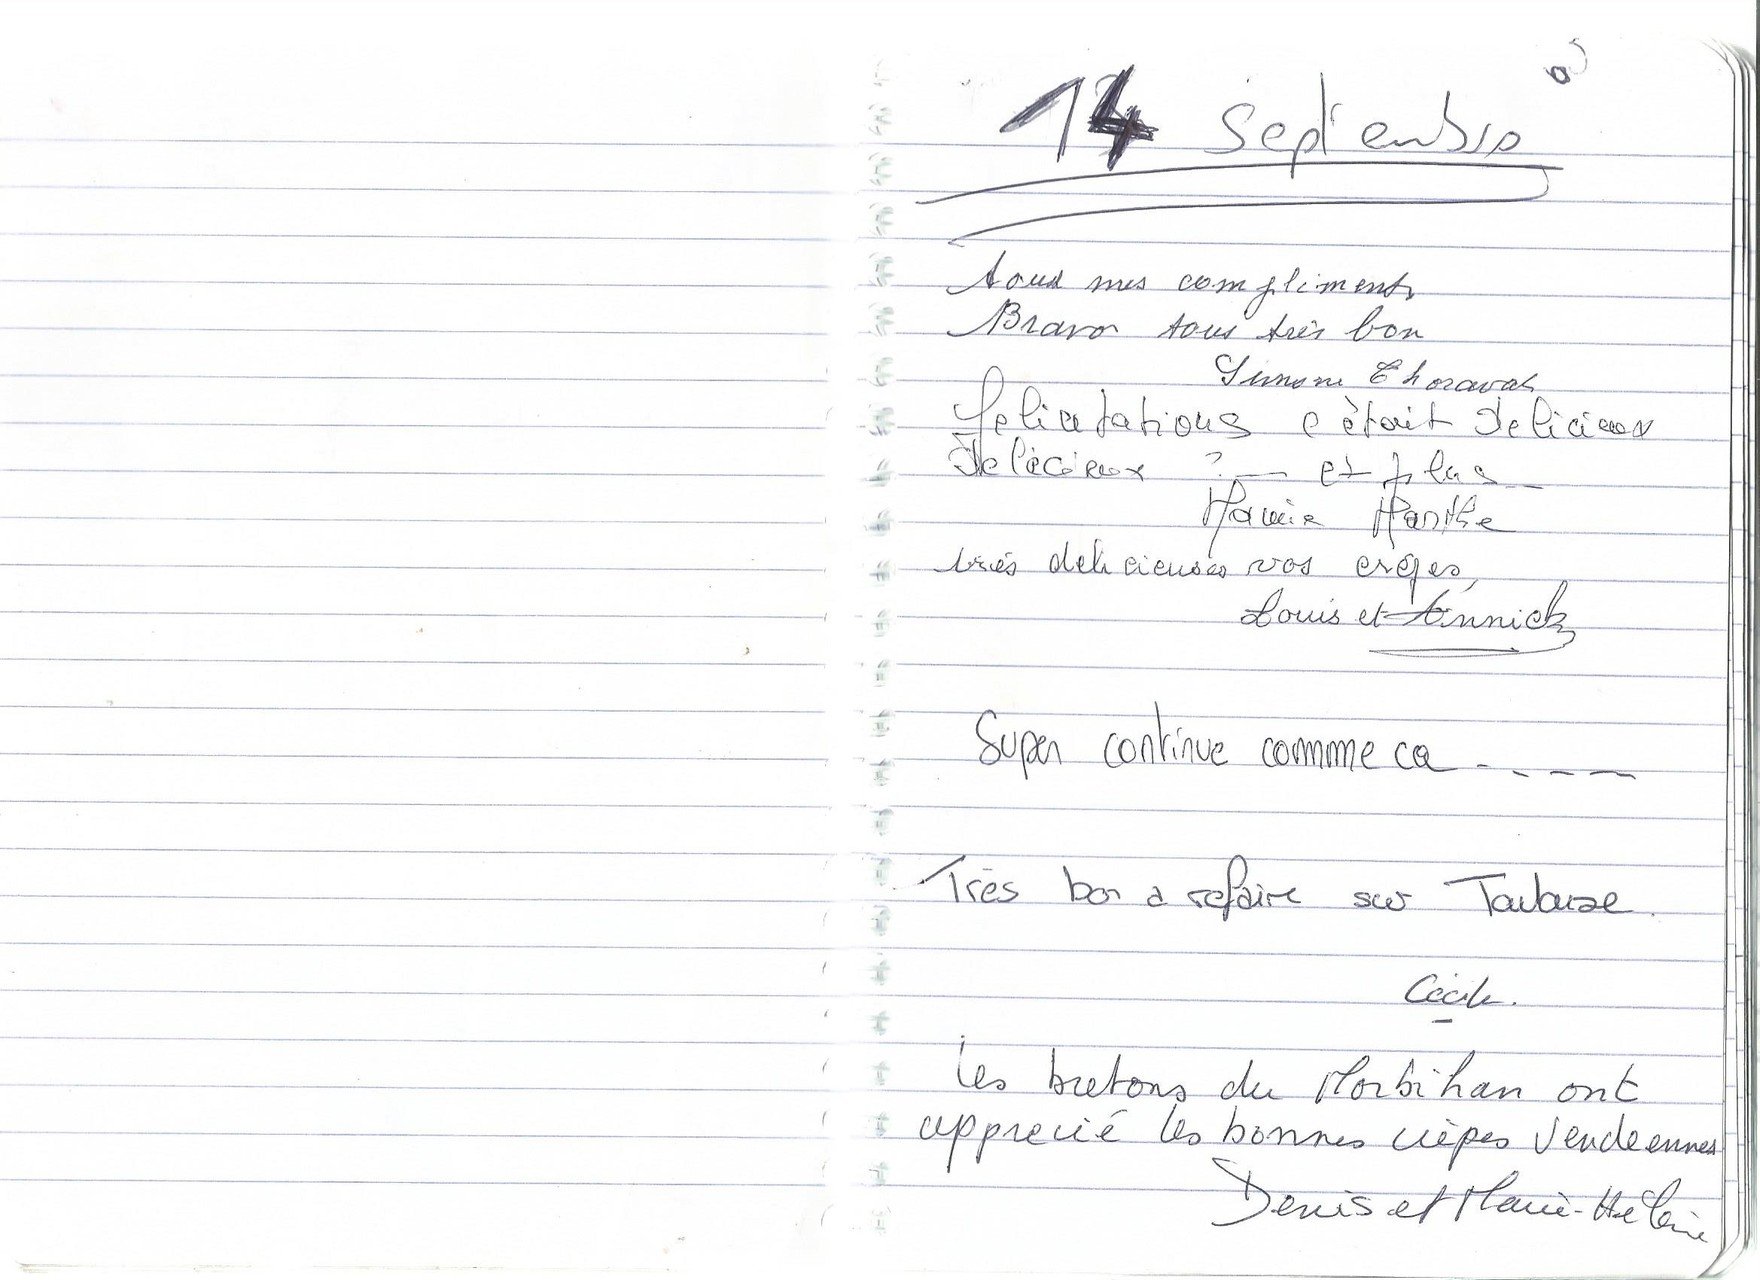 14 Septembre
05
tous mes compliments
Bravo tous très bon
Simone Thoraval
felicitations c'était delicieux
delicieux ? — et plus --
Marie Marthe
très delicieuses vos crêpes,
Louis et Annick
Super continue comme ca - - - - -
Très bon a refaire sur Toulouse.
Cécile.
Les bretons du Morbihan ont
apprecié les bonnes crèpes Vendeennes
Denis et Marie-Hélène